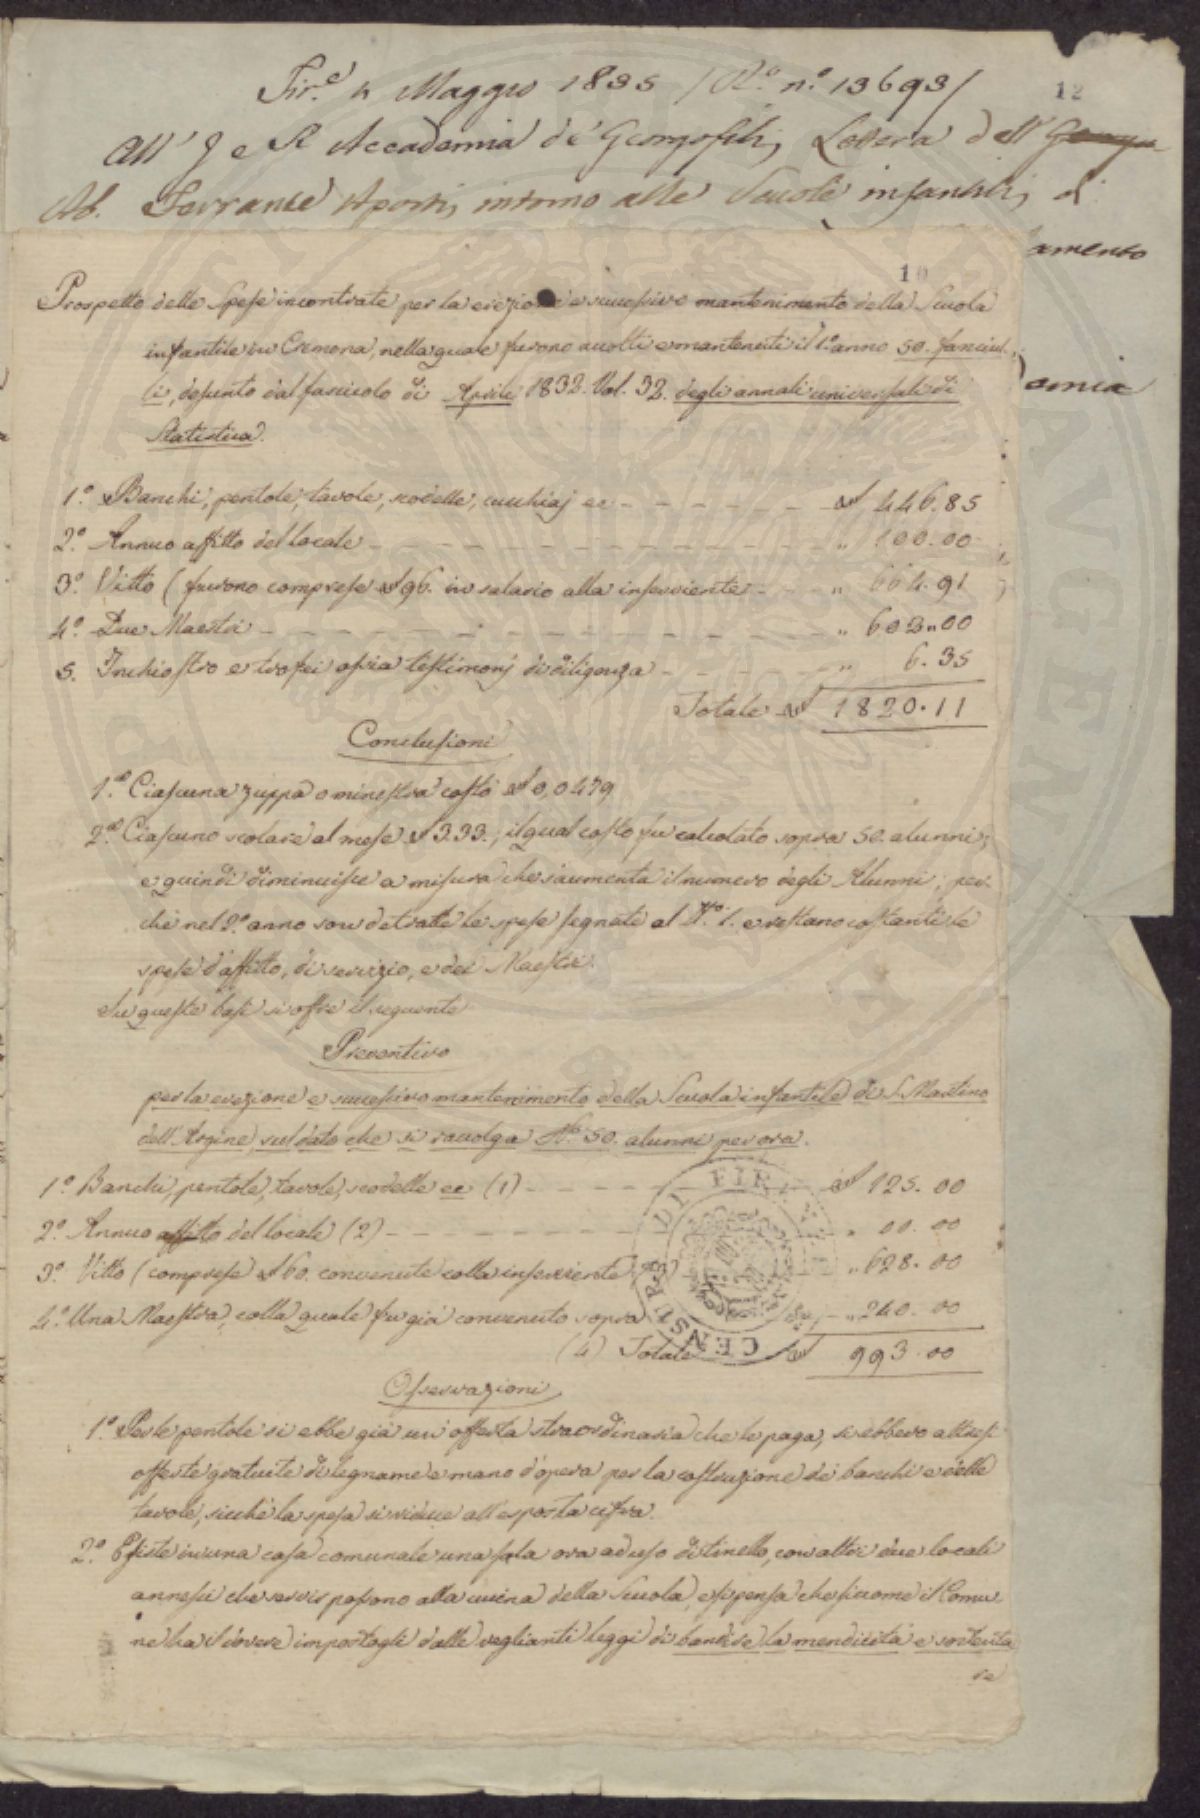 Fir.e 4 Maggio 1835 / R.o n.o 13693/
12
All' I e R Accademia de' Georgofili, Lettera dell'
Ab. Ferrante Aporti, intorno alle Scuole infantili, di
amento
10
Prospetto delle Spese incontrate per la erezione e successivo mantenimento della Scuola
infantile in Cremona, nella quale furono accolti e mantenuti il 1.o anno 50. fanciul-
li, desunto dal fascicolo di Aprile 1832. Vol. 32. degli annali universali di
Statistica.
omia
1.o Banchi, pentole, tavole, scodelle, cucchiaj ec - - - - - - - 446.85
2.o Annuo affitto del locale - - - - - - - " 100.00
3.o Vitto (furono comprese 96. in salario alla inserviente - - - " 664.91
4.o Due Maestri - - - - - - - " 602"00
5. Inchiostro e trofei ossia testimonj di diligenza - - - - - " 6.35
Totale 1820.11
Conclusioni
1.o Ciascuna zuppa o minestra costò 0,0479
2.o Ciascuno scolare al mese 3.33.; il qual costo fu calcolato sopra 50. alunni;
e quindi diminuisce a misura che s'aumenta il numero degli Alunni; per-
chè nel 2.o anno son detratte le spese segnate al N.o 1. e restano costanti le
spese d'affitto, di servizio, e dei Maestri.
Su queste basi si offre il seguente
Preventivo
per la erezione e successivo mantenimento della Scuola infantile di S. Martino
dell'Argine, sul dato che si raccolga N.o 50. alunni per ora.
1.o Banchi, pentole, tavole, scodelle ec (1) - - - - - - - 125.00
2.o Annuo affitto del locale (2) - - - - - - - " 00.00
3.o Vitto (comprese 60. convenute colla inserviente (3) - - - " 628.00
4.o Una Maestra, colla quale fu già convenuto sopra - " 240.00
(4) Totale 993.00
CENSURA DI FIR
Osservazioni
1.o Per le pentole si ebbe già un'offerta straordinaria che le paga, si ebbero altresì
offerte gratuite di legname e mano d'opera per la costruzione dei banchi e delle
tavole, sicchè la spesa si riduce all'esposta cifra.
2.o Esiste in una casa comunale una sala ora ad uso di tinello, con altri due locali
annessi che servir possono alla cucina della Scuola, e si pensa che siccome il Comu-
ne ha il dovere impostogli dalle veglianti leggi di bandire la mendicità e sortirla
se